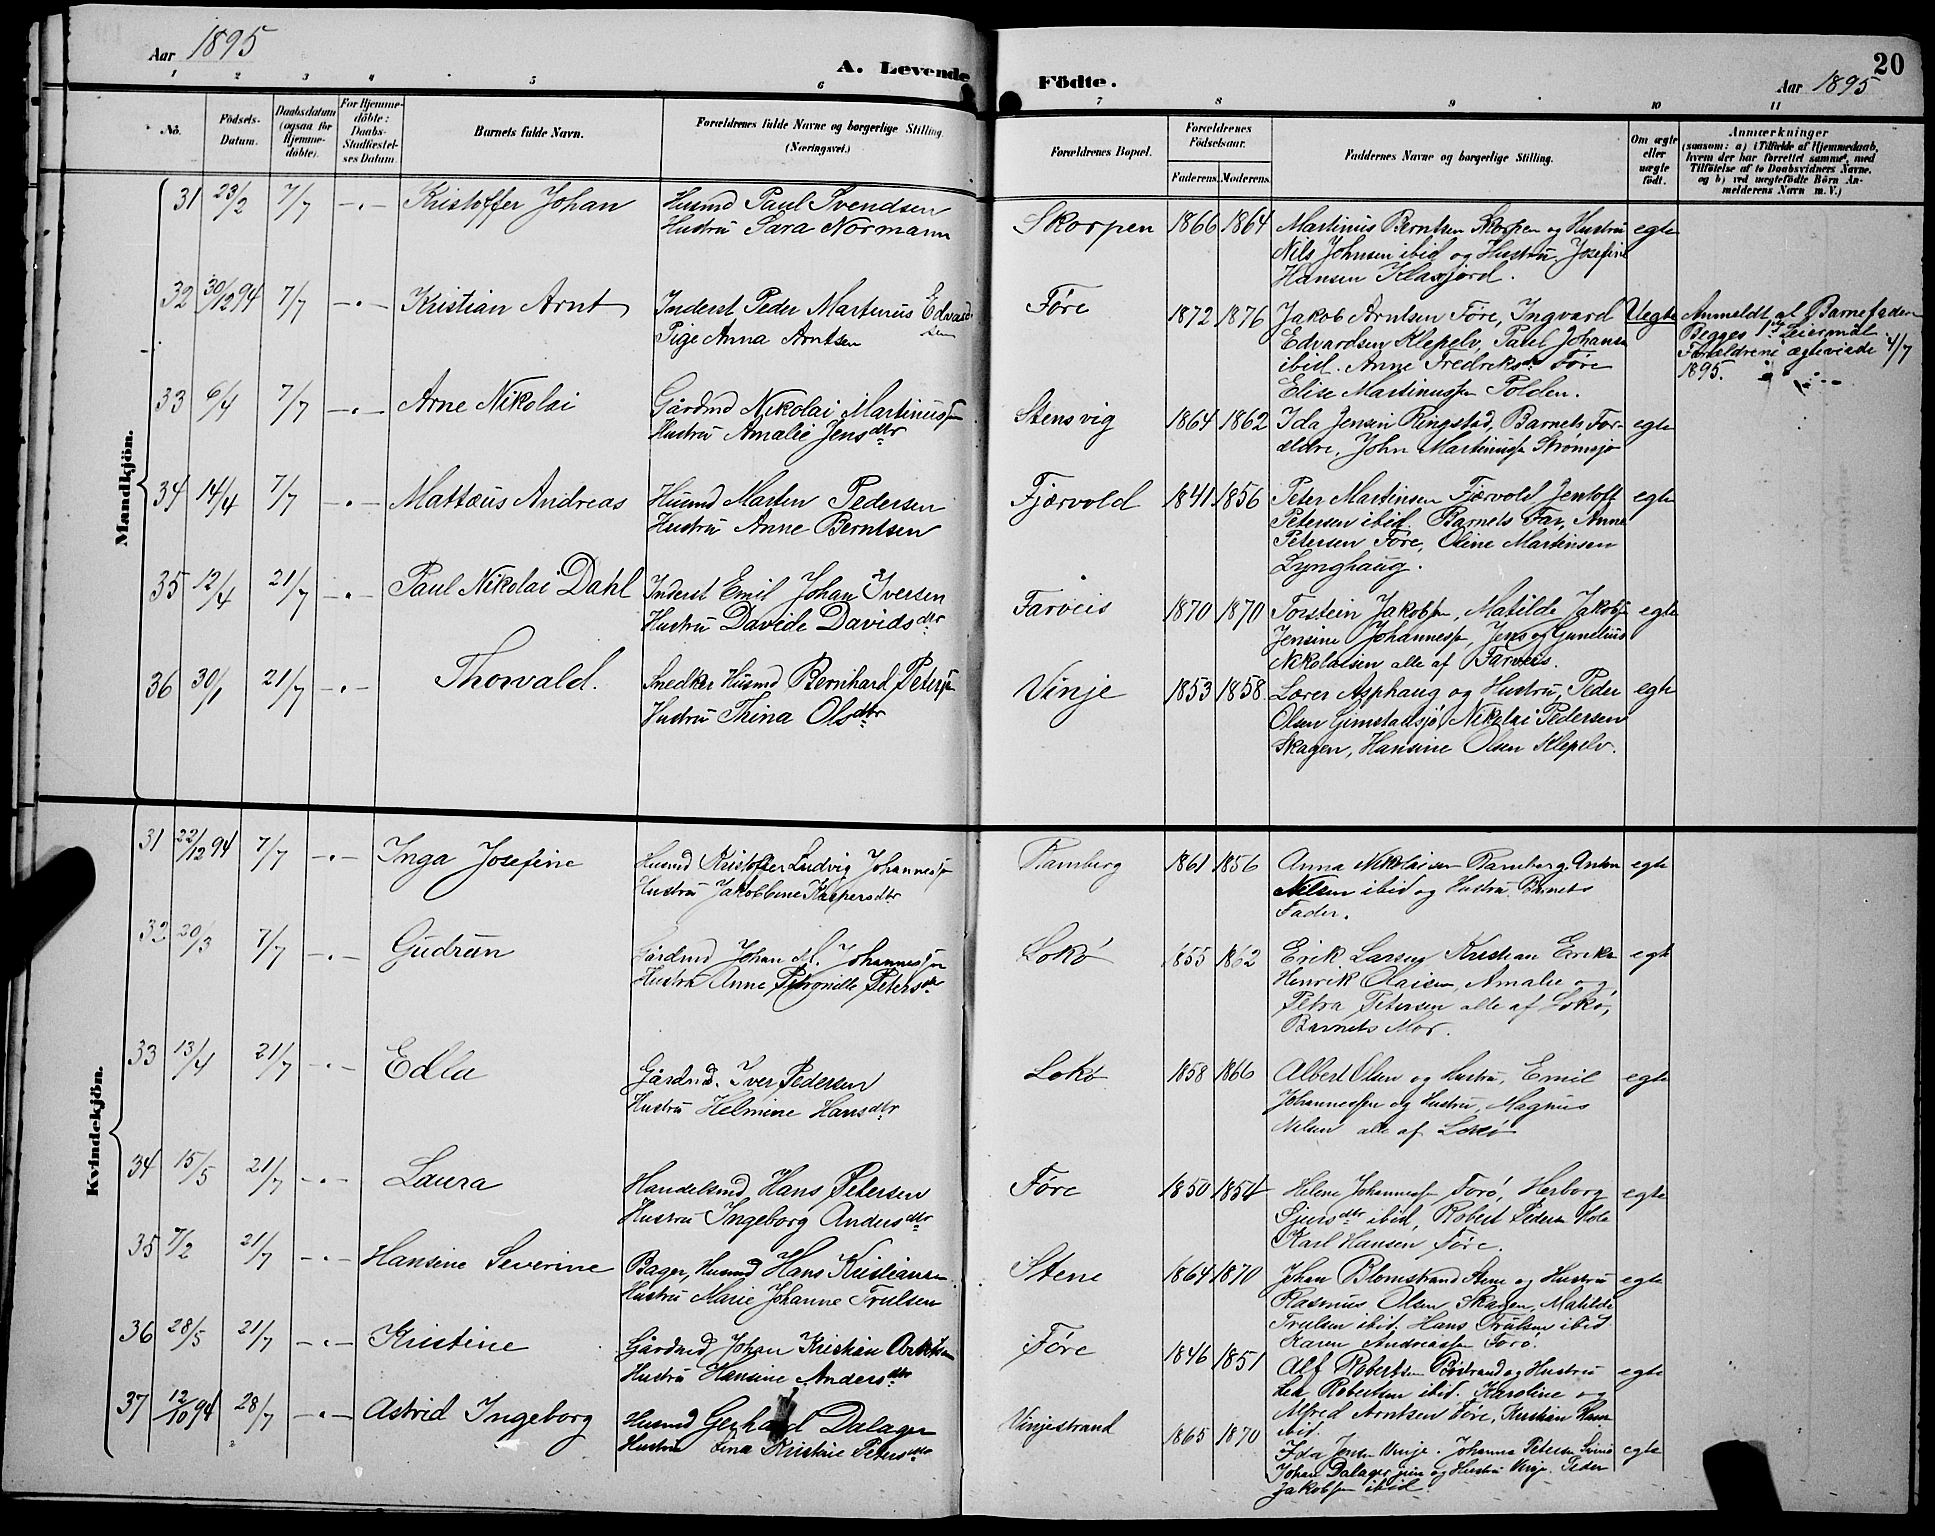 Aar 1895
A. Levende Födte.
20
Aar 1895
1 2 3 4 5 6 7 8 9 10 11
No.
Födsels-
Datum.
Daabsdatum
(ogsaa for
Hjemme-
döbte).
For Hjemme-
döbte:
Daabs-
Stadfæstel-
ses Datum.
Barnets fulde Navn.
Forældrenes fulde Navne og borgerlige Stilling.
(Næringsvei.)
Forældrenes Bopæl.
Forældrenes
Födselsaar.
Faderens. Moderens.
Faddernes Navne og borgerlige Stilling.
Om ægte
eller
uægte
født.
Anmærkninger
(saasom: a) i Tilfælde af Hjemmedaab,
hvem der har forrettet samme, med
Tilföielse af to Daabsvidners Navne,
og b) ved uægtefödte Börn An-
melderens Navn m. V.)
Mandkjön.
31 23/2 7/7 - " - Kristoffer Johan
Husmd Paul Svendsen
Hustru Sara Normann
Skorpen 1866 1864
Martinus Berntsen Skorpen og Hustru
Nils Johnsen ibid og Hustru, Josefine
Hansen Klaxjord.
egte
32 30/12 94 7/7 - " - Kristian Arnt
Inderst Peder Martinus Edvard
sen
Pige Anna Arntsen
Føre 1872 1876
Jakob Arntsen Føre, Ingvard
Edvardsen Klepelv, Paul Johans
ibid. Anne Fredriks Føre
Elise Martinussen Polden.
Uegte
Anmeldt af Barnefaderen
Begges 1ste Leiermål
Forældrene ægteviede 4/7
1895.
33 6/4 7/7 - " - Arne Nikolai
Gårdmd Nikolai Martinussen
Hustru Amalie Jensdtr
Stensvig 1864 1862
Ida Jensen Ringstad, Barnets For-
ældre, John Martinussen Strømsjø
egte
34 14/4 7/7 - " - Mattæus Andreas
Husmd Marten Pedersen
Hustru Anne Berntsen
Fjærvold 1841 1856
Peter Martinsen Fjærvold Jentoft
Petersen ibid. Barnets Far, Anne
Petersen Føre, Oline Martinsen
Lynghaug.
egte
35 12/4 21/7 - " - Paul Nikolai Dahl
Inderst Emil Johan Iversen
Hustru Davide Davidsdtr
Farveis 1870 1870
Torstein Jakobsen, Matilde Jakobsen
Jensine Johannessen, Jens og Gunelius
Nikolaisen alle af Farveis.
egte
36 30/1 21/7 - " - Thorvald.
Snedker Husmd Bernhard Petersen
Hustru Thina Olsdtr
Vinje 1853 1858
Lærer Asphaug og Hustru, Peder
Olsen Gimstadsjø, Nikolai Pedersen
Skagen, Hansine Olsen Klepelv.
egte
Kvindekjön.
31 22/12 94 7/7 - " - Inga Josefine
Husmd Kristoffer Ludvig Johannessen
Hustru Jakobbine Kaspersdtr
Ramberg 1861 1856
Anna Nikolaisen Ramberg, Anton
Nelsen ibid og Hustru Barnets
Fader.
egte
32 20/3 7/7 - " - Gudrun
Gårdmd Johan M. Johannessen
Hustru Anne Petronille Petersdtr
Lokø 1855 1862
Erik Larsen, Kristian Eriks
Henrik Olaisen, Amalie og
Petra Petersen alle af Lokø,
Barnets Mor.
egte
33 13/4 21/7 - " - Edla
Gårdmd. Iver Pedersen
Hustru Helmine Hansdtr
Lokø 1858 1866
Albert Olsen og Hustru, Emil
Johannessen og Hustru, Magnus
Nilsen alle af Lokø
egte
34 15/5 21/7 - " - Laura
Handelsmd Hans Petersen
Hustru Ingeborg Andersdtr
Føre 1850 1854
Helene Johannessen Forø, Herborg
Sjursdtr ibid, Robert Pedersen
Karl Hansen Føre.
egte
35 7/2 21/7 - " - Hansine Severine
Bager, Husmd Hans Kristiansen
Hustru Marie Johanne Trulsen
Stene 1864 1870
Johan Blomstrand Stene og Hustru
Rasmus Olsen Skagen, Matilde
Trulsen ibid. Hans Trulsen ibid
Karen Andreassen Forø.
egte
36 28/5 21/7 - " - Kristine
Gårdmd Johan Kristian
Hustru Hansine Andersdtr
Føre 1846 1851
Alf Robertsen Bøstrand og Hustru
Lea Robertsen ibid. Karoline og
Alfred Arntsen Føre, Kristian Hans
ibid.
egte
37 12/10 94 28/7 - " - Astrid Ingeborg
Husmd Gerhard Dalager
Hustru Lina Kristine Petersdtr
Vinjestrand 1865 1870
Ida Jensen Vinje. Johanna Petersen
Johan Dalager jun og Hustru Vinje. Peder
Jakobsen ibid.
egte